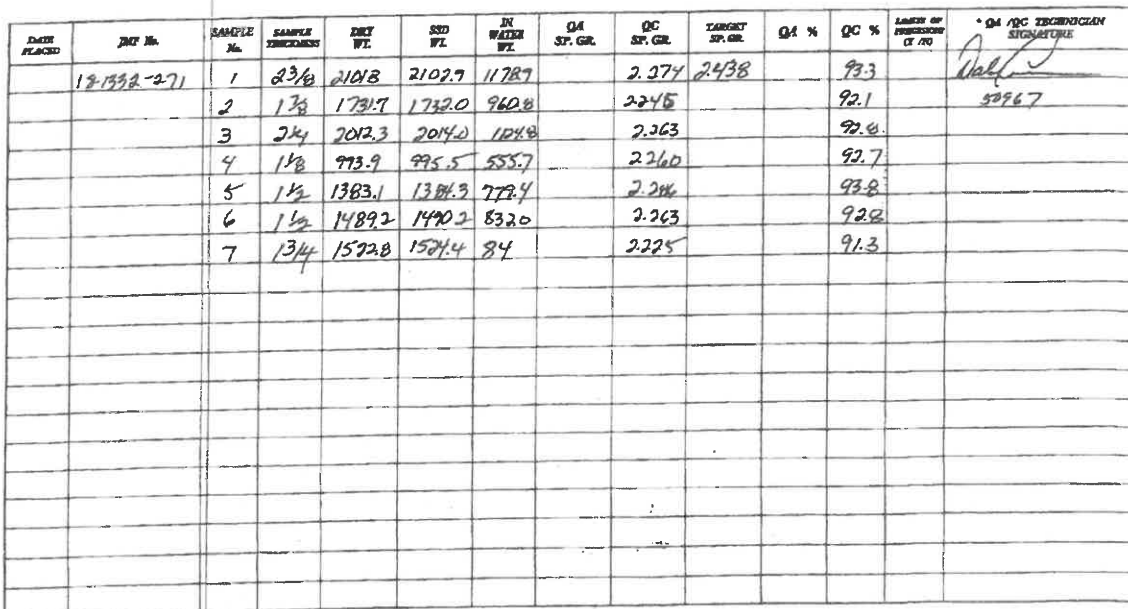 DATE PLACED JMF No. SAMPLE No. SAMPLE THICKNESS DRY WT. SSD WT. IN WATER WT. QA SP. GR. QC SP. GR. TARGET SP. GR. QA % QC % LIMITS OF PRECISION (Y /N) * QA /QC TECHNICIAN SIGNATURE
18-1332-271 1 2 3/8 2101.8 2102.9 1178.9 2.274 2.438 93.3
2 1 7/8 1731.7 1732.0 960.8 2.245 92.1 50967
3 2 1/4 2012.3 2014.0 1124.8 2.263 92.8
4 1 1/8 993.9 995.5 555.7 2.260 92.7
5 1 1/2 1383.1 1384.3 779.4 2.286 93.8
6 1 1/2 1489.2 1490.2 832.0 2.263 92.8
7 1 3/4 1522.8 1524.4 84 2.225 91.3